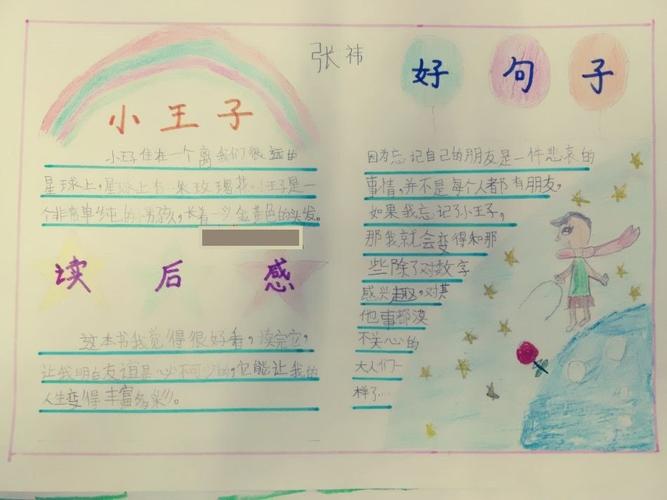 张祎
小王子
小王子住在一个离我们很远的
星球上，星球上有一朵玫瑰花。小王子是一
个非常单纯的男孩，长着一头金黄色的头发。
读后感
这本书我觉得很好看，读完它，
让我明白友谊是必不可少的，它能让我的
人生变得丰富多彩。
好句子
因为忘记自己的朋友是一件悲哀的
事情，并不是每个人都有朋友，
如果我忘记了小王子，
那我就会变得和那
些除了对数字
感兴趣，对其
他事都漠
不关心的
大人们一
样了……